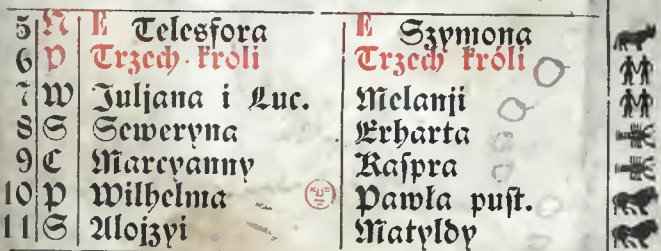 5 N E Telesfora E Szymona
6 P Trzech kroli Trzech króli
7 W Juljana i Luc. Melanji
8 S Seweryna Erharta
9 C Marcyanny Kaspra
10 P Wilhelma Pawła pust.
11 S Alojzyi Matyldy